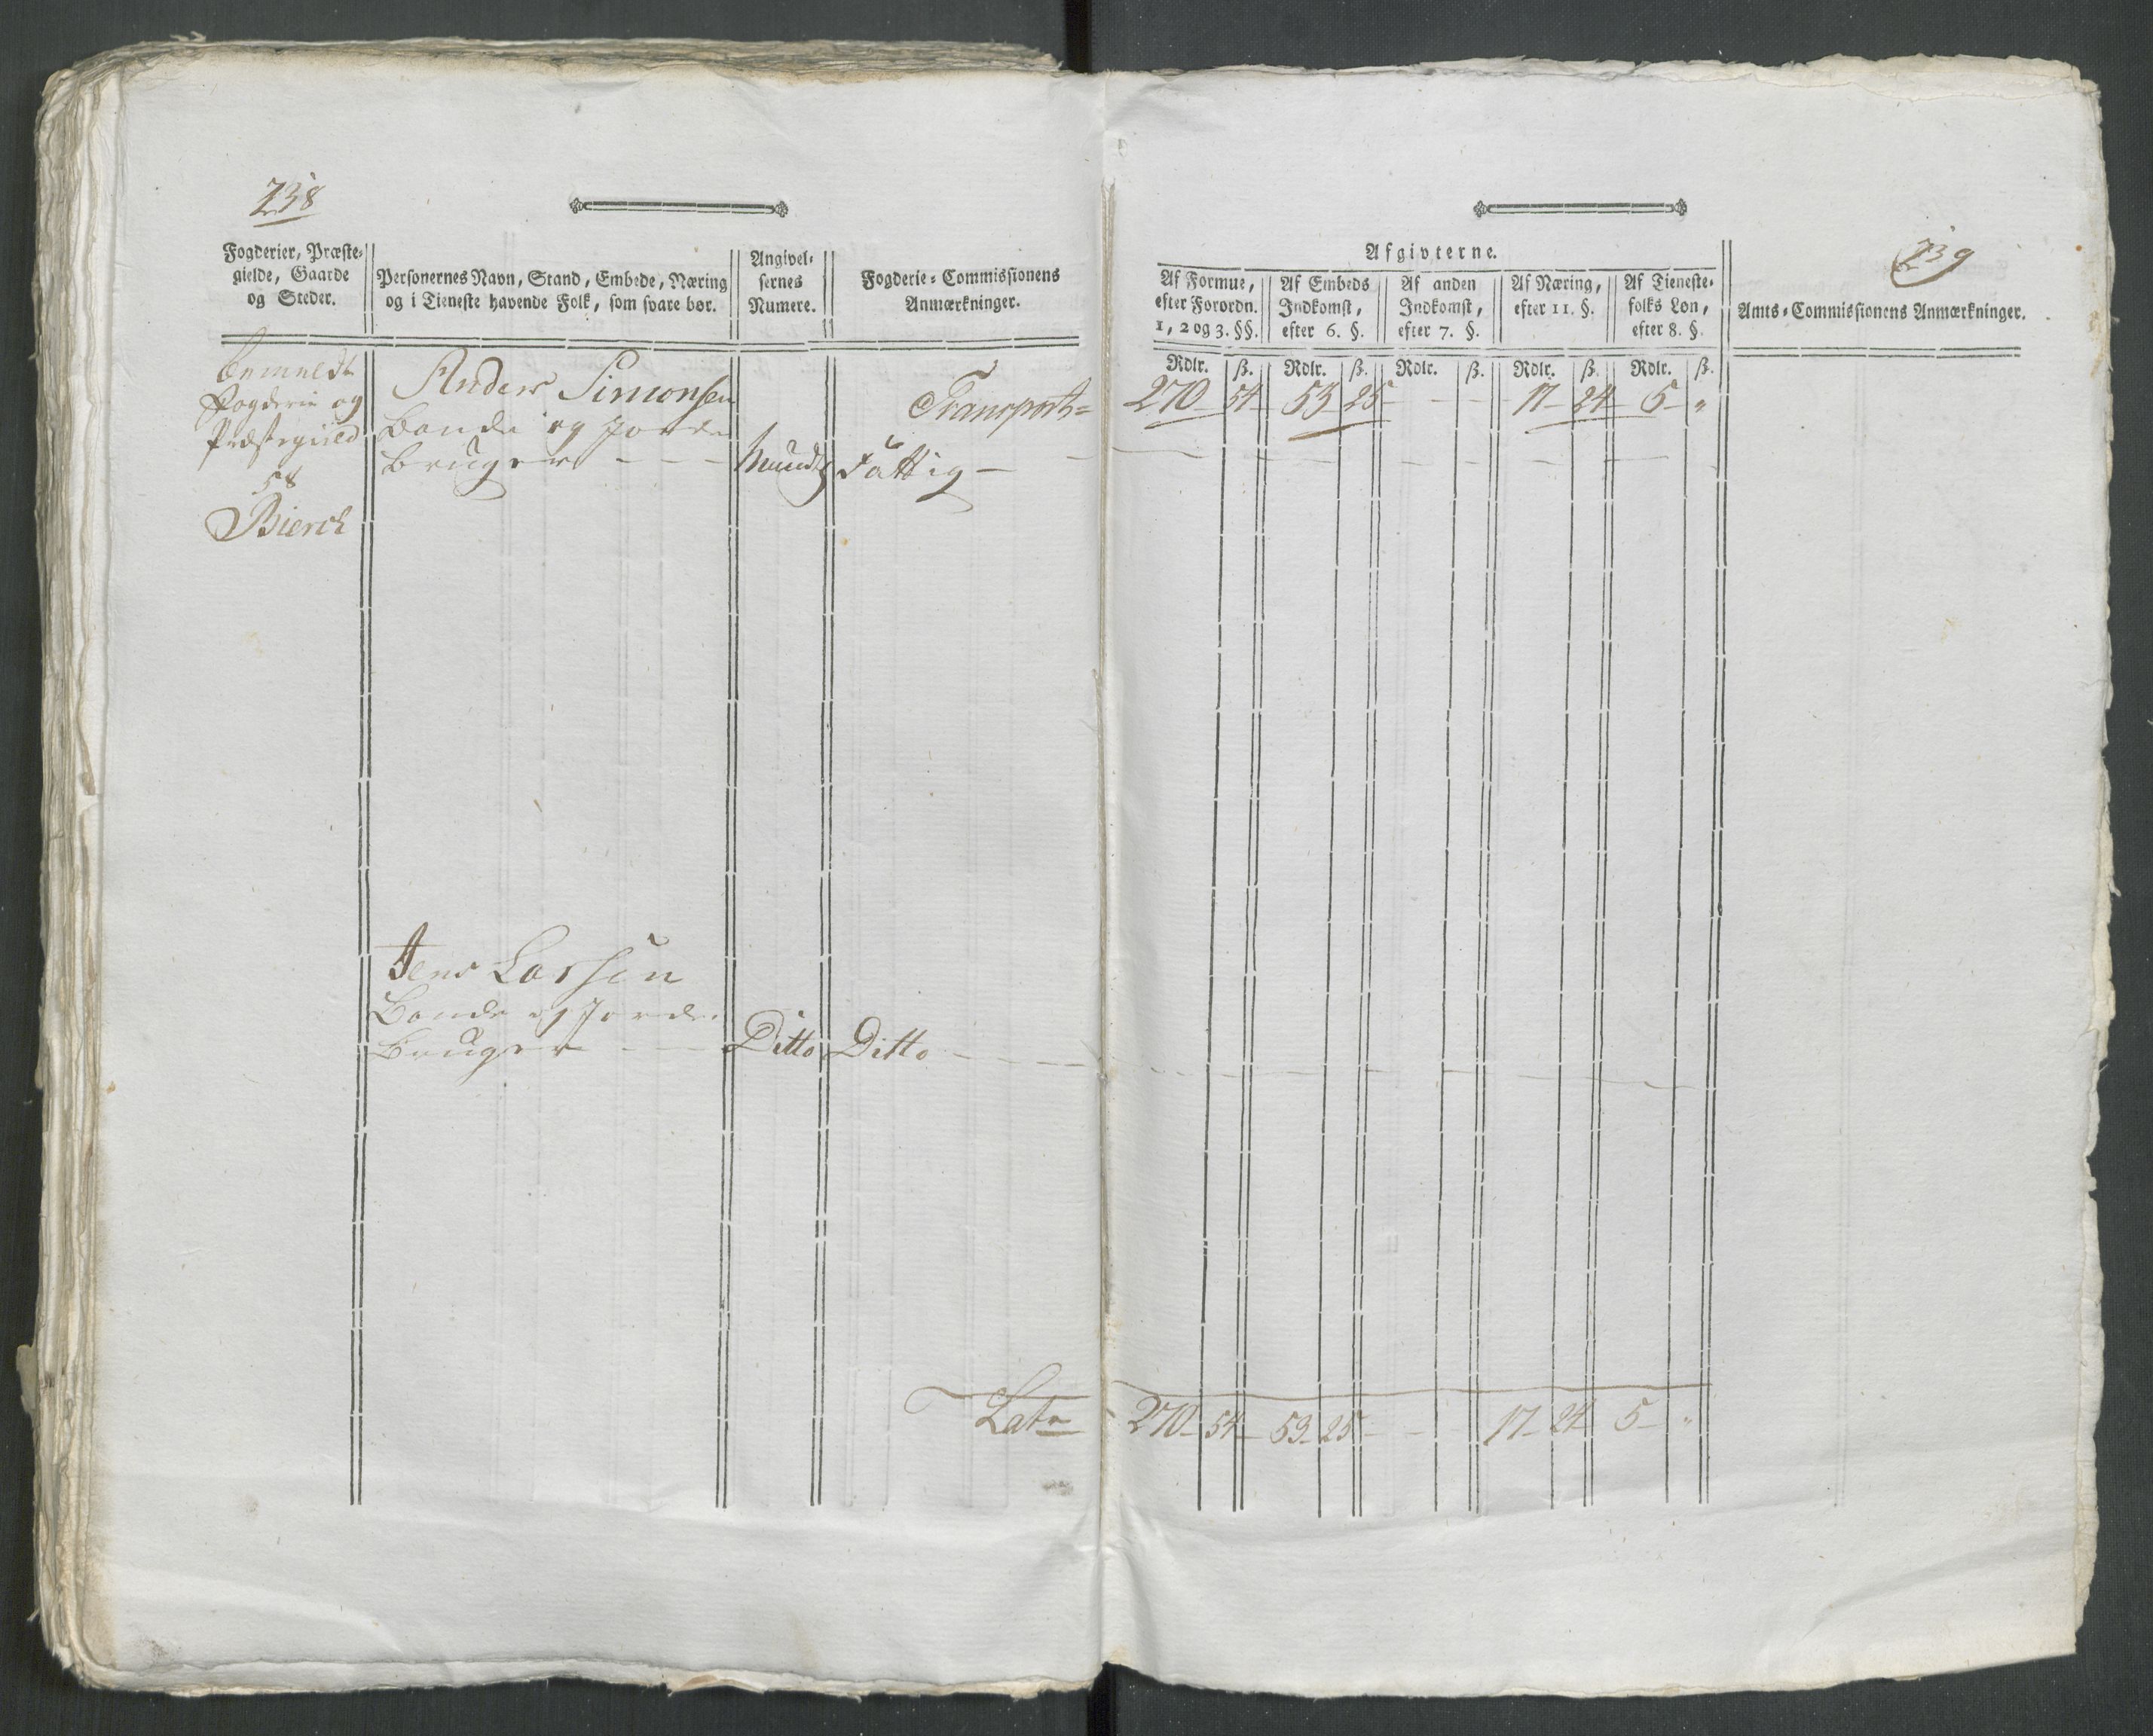 238
Fogderier, Præste-
gielde, Gaarde
og Steder.
Personernes Navn, Stand, Embede, Næring
og i Tieneste havende Folk, som svare bør.
Angivel-
sernes
Numere.
Fogderie-Commissionens
Anmærkninger.
bemeldt
Fogderie og
Præstegield
58
Bierck
Anders Simonsen
Bonde og Jorde
bruger - - -
Mundtl
Transport=
Fattig -
Jens Larsen
Bonde og Jorde
Bruger - - -
Ditto
Ditto - - -
Latr
239
Afgivterne.
Af Formue,
efter Forordn.
1, 2 og 3. §§.
Af Embeds
Indkomst,
efter 6. §.
Af anden
Indkomst,
efter 7. §.
Af Næring,
efter 11. §.
Af Tieneste-
folks Løn,
efter 8. §.
Amts-Commissionens Anmærkninger.
Rdlr. ß. Rdlr. ß. Rdlr. ß. Rdlr. ß. Rdlr. ß.
270 - 54 - 53 - 25 - - - 17 - 24 - 5 - "
270 - 54 - 53 - 25 - - - 17 - 24 5 - "